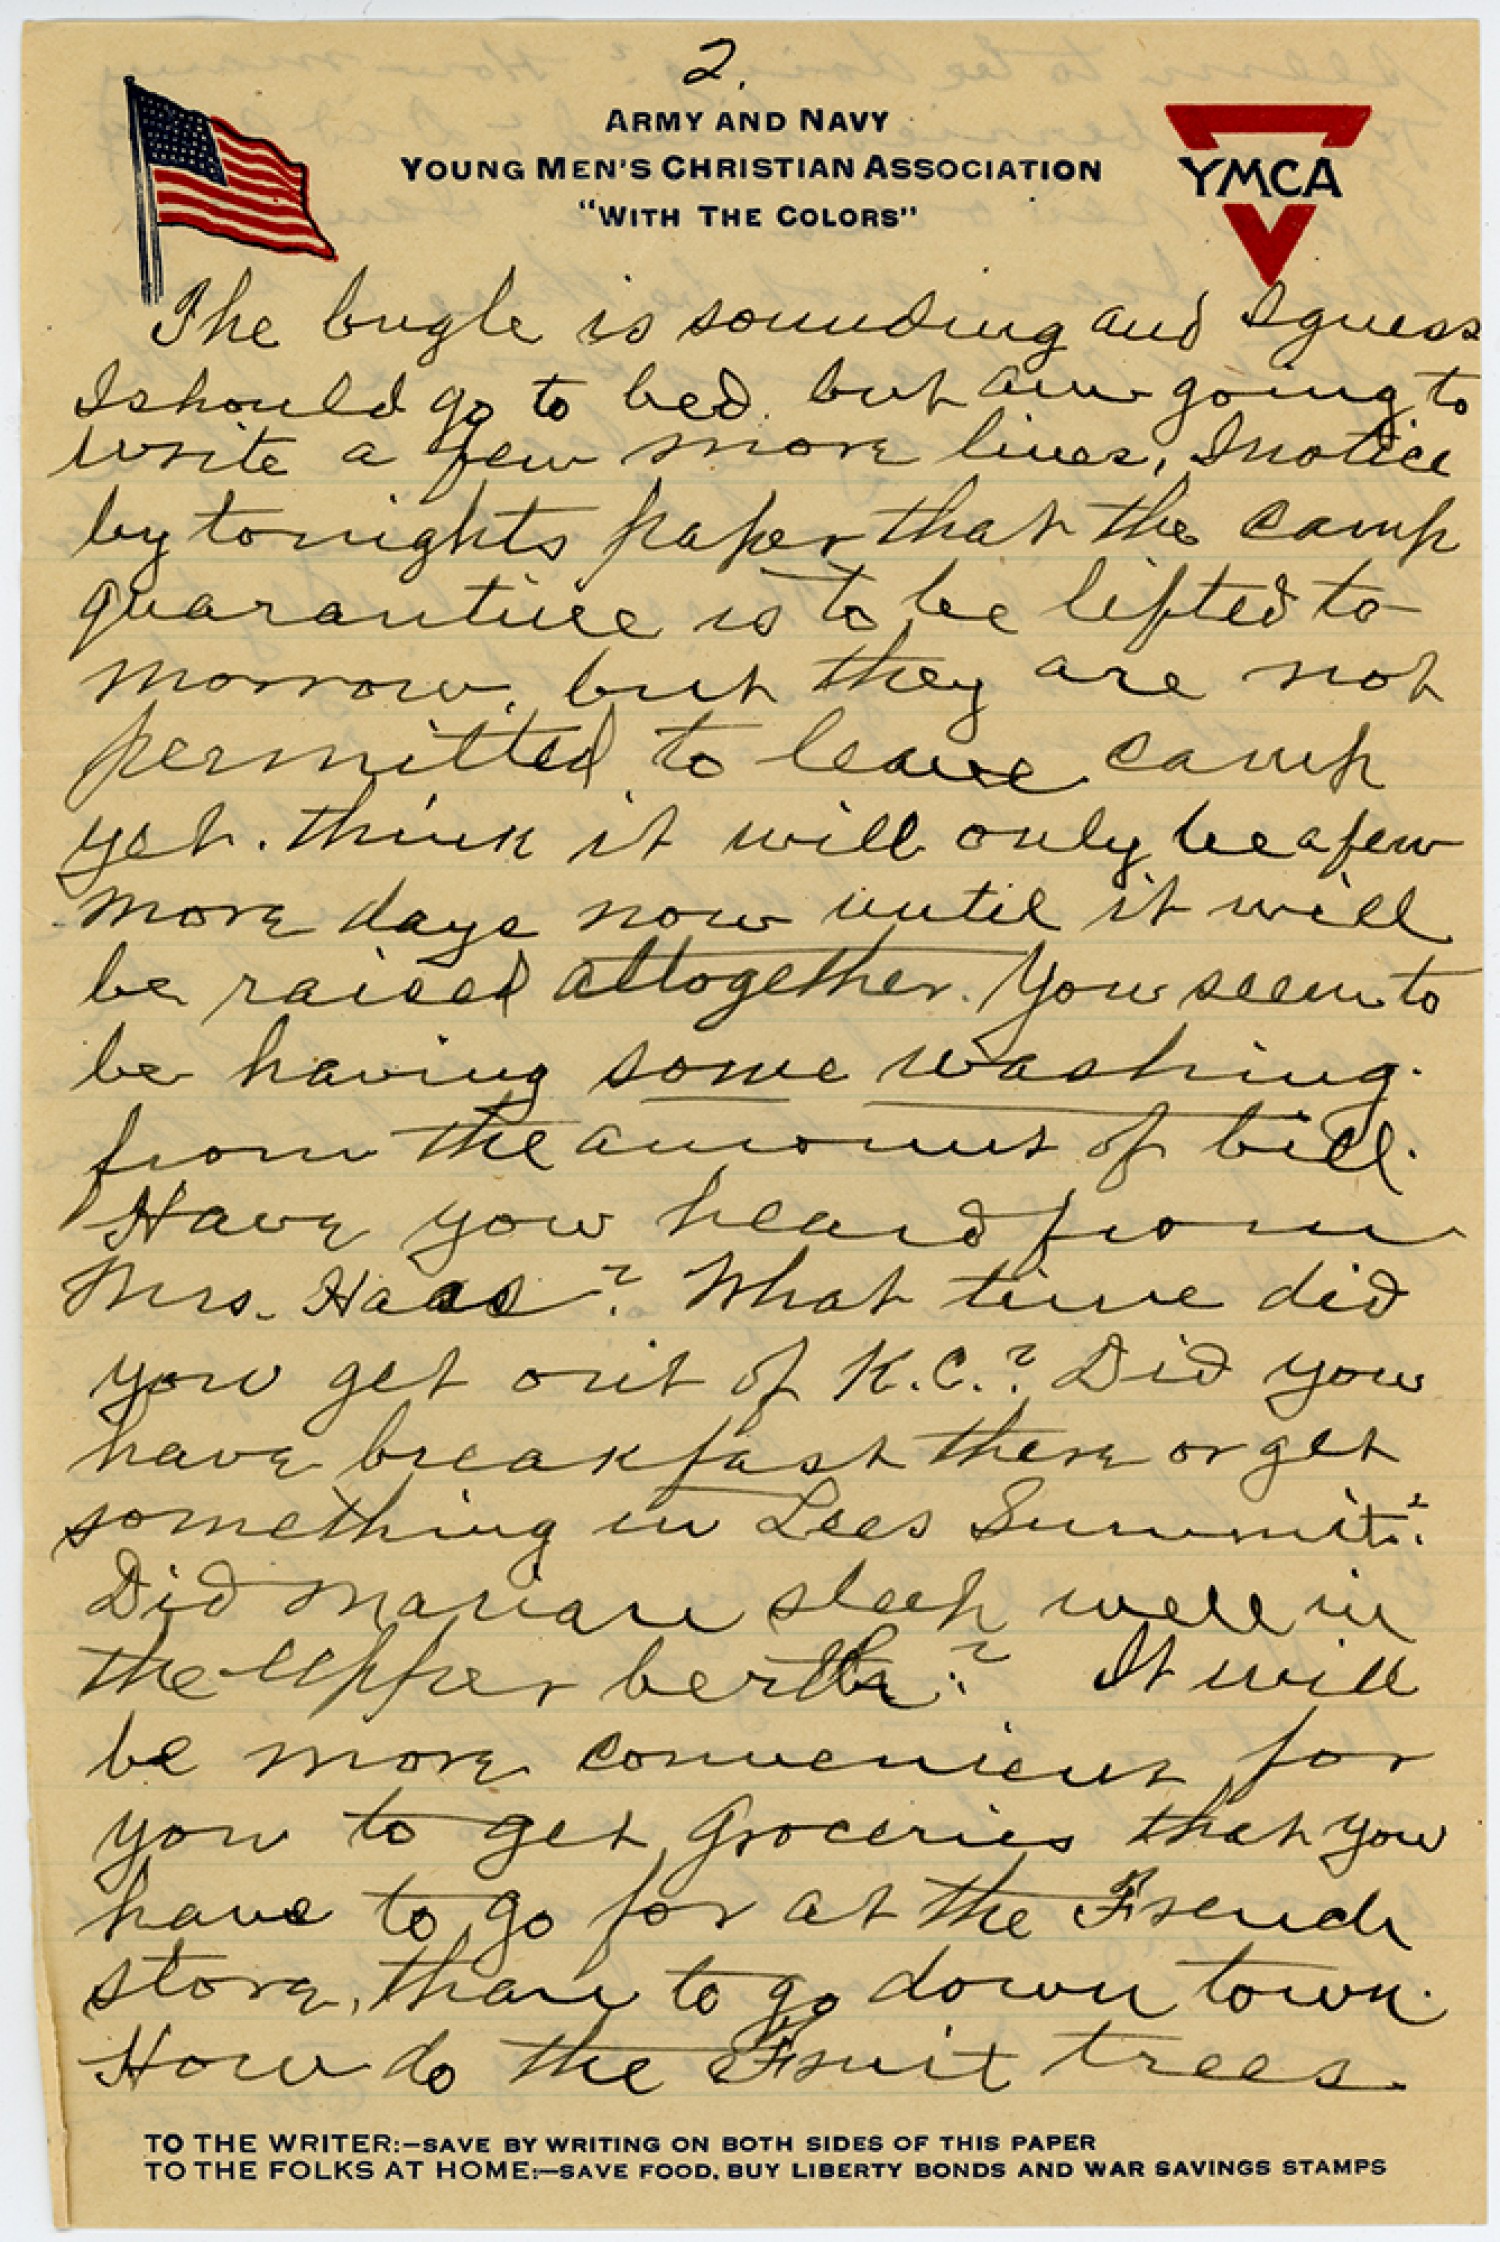 2.
ARMY AND NAVY
YOUNG MEN'S CHRISTIAN ASSOCIATION
"WITH THE COLORS"
YMCA
The bugle is sounding and I guess
I should go to bed. but am going to
write a few more lines, I notice
by tonights paper that the camp
quarantiee is to be lifted to
morrow. but they are not
permitted to leave camp
yet. think it will only be a few
more days now until it will
be raised altogether. You seem to
be having some washing.
from the amount of bill.
Have you heard from
Mrs. Haas? What time did
you get out of K.C.? Did you
have breakfast there or get
something in Lees Summit?
Did Marian sleep well in
the upper berth? It will
be more convenient for
you to get groceries that you
have to go for at the French
store, than to go down town.
How do the Fruit trees
TO THE WRITER:—SAVE BY WRITING ON BOTH SIDES OF THIS PAPER
TO THE FOLKS AT HOME:—SAVE FOOD, BUY LIBERTY BONDS AND WAR SAVINGS STAMPS